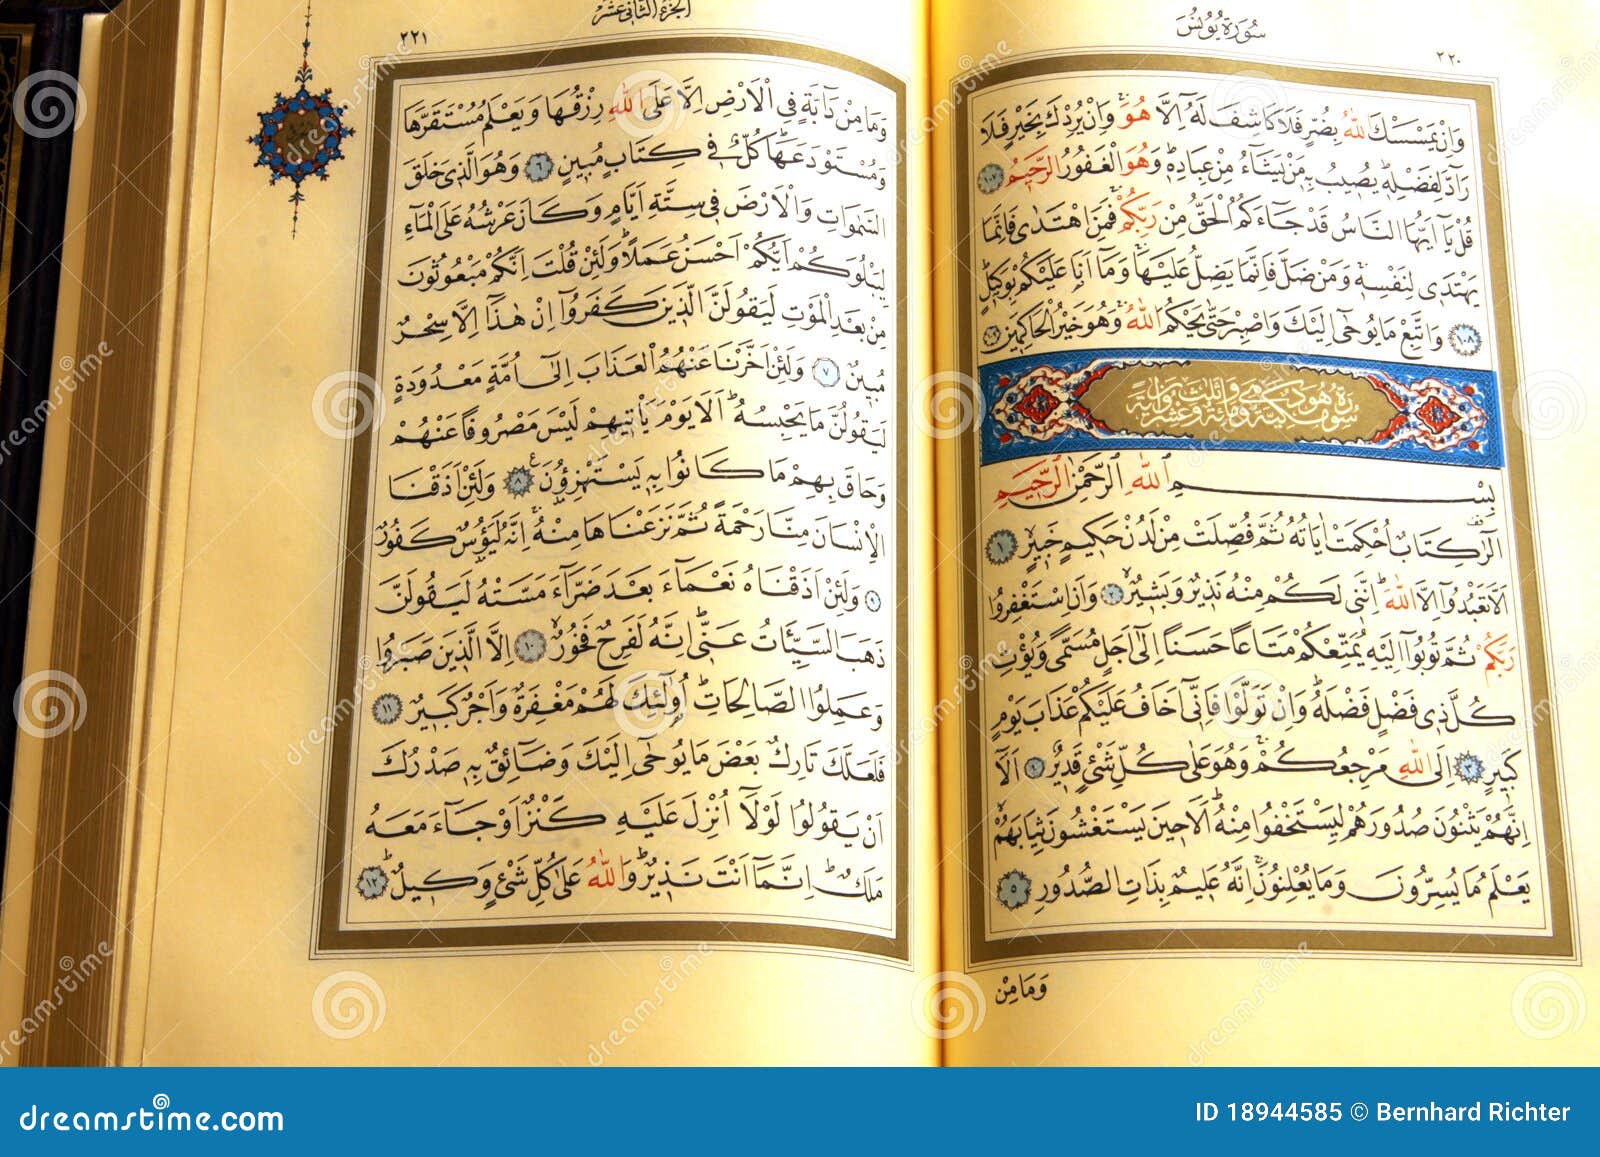 سورة يونس
٢٢٠
وَاِنْ يَمْسَسْكَ اللّٰهُ بِضُرٍّ فَلَا كَاشِفَ لَهُٓ اِلَّا هُوَۚ وَاِنْ يُرِدْكَ بِخَيْرٍ فَلَا
رَٓادَّ لِفَضْلِهٖؕ يُصٖيبُ بِهٖ مَنْ يَشَٓاءُ مِنْ عِبَادِهٖؕ وَهُوَ الْغَفُورُ الرَّحٖيمُ ﴿١٠٧﴾
قُلْ يَٓا اَيُّهَا النَّاسُ قَدْ جَٓاءَكُمُ الْحَقُّ مِنْ رَبِّكُمْۚ فَمَنِ اهْتَدٰى فَاِنَّمَا
يَهْتَدٖى لِنَفْسِهٖۚ وَمَنْ ضَلَّ فَاِنَّمَا يَضِلُّ عَلَيْهَاۚ وَمَٓا اَنَا عَلَيْكُمْ بِوَكٖيلٍؕ
﴿١٠٨﴾ وَاتَّبِعْ مَا يُوحٰٓى اِلَيْكَ وَاصْبِرْ حَتّٰى يَحْكُمَ اللّٰهُۚ وَهُوَ خَيْرُ الْحَاكِمٖينَ ﴿١٠٩﴾
سورة هود مكية وهي مائة وثلث وعشرون آية
بِسْمِ اللّٰهِ الرَّحْمٰنِ الرَّحٖيمِ
الٓرٰ كِتَابٌ اُحْكِمَتْ اٰيَاتُهُ ثُمَّ فُصِّلَتْ مِنْ لَدُنْ حَكٖيمٍ خَبٖيرٍۙ ﴿١﴾
اَلَّا تَعْبُدُٓوا اِلَّا اللّٰهَؕ اِنَّنٖى لَكُمْ مِنْهُ نَذٖيرٌ وَبَشٖيرٌۙ ﴿٢﴾ وَاَنِ اسْتَغْفِرُوا
رَبَّكُمْ ثُمَّ تُوبُٓوا اِلَيْهِ يُمَتِّعْكُمْ مَتَاعًا حَسَنًا اِلٰٓى اَجَلٍ مُسَمًّى وَيُؤْتِ
كُلَّ ذٖى فَضْلٍ فَضْلَهُؕ وَاِنْ تَوَلَّوْا فَاِنّٖٓى اَخَافُ عَلَيْكُمْ عَذَابَ يَوْمٍ
كَبٖيرٍ ﴿٣﴾ اِلَى اللّٰهِ مَرْجِعُكُمْۚ وَهُوَ عَلٰى كُلِّ شَیْءٍ قَدٖيرٌ ﴿٤﴾ اَلَٓا
اِنَّهُمْ يَثْنُونَ صُدُورَهُمْ لِيَسْتَخْفُوا مِنْهُؕ اَلَا حٖينَ يَسْتَغْشُونَ ثِيَابَهُمْۙ
يَعْلَمُ مَا يُسِرُّونَ وَمَا يُعْلِنُونَۚ اِنَّهُ عَلٖيمٌ بِذَاتِ الصُّدُورِ ﴿٥﴾
وَمَا مِنْ
الجزء الثانى عشر
٢٢١
وَمَا مِنْ دَٓابَّةٍ فِى الْاَرْضِ اِلَّا عَلَى اللّٰهِ رِزْقُهَا وَيَعْلَمُ مُسْتَقَرَّهَا
وَمُسْتَوْدَعَهَاؕ كُلٌّ فٖى كِتَابٍ مُبٖينٍ ﴿٦﴾ وَهُوَ الَّذٖى خَلَقَ
السَّمٰوَاتِ وَالْاَرْضَ فٖى سِتَّةِ اَيَّامٍ وَكَانَ عَرْشُهُ عَلَى الْمَٓاءِ
لِيَبْلُوَكُمْ اَيُّكُمْ اَحْسَنُ عَمَلًاؕ وَلَئِنْ قُلْتَ اِنَّكُمْ مَبْعُوثُونَ
مِنْ بَعْدِ الْمَوْتِ لَيَقُولَنَّ الَّذٖينَ كَفَرُٓوا اِنْ هٰذَٓا اِلَّا سِحْرٌ
مُبٖينٌ ﴿٧﴾ وَلَئِنْ اَخَّرْنَا عَنْهُمُ الْعَذَابَ اِلٰٓى اُمَّةٍ مَعْدُودَةٍ
لَيَقُولُنَّ مَا يَحْبِسُهُؕ اَلَا يَوْمَ يَاْتٖيهِمْ لَيْسَ مَصْرُوفًا عَنْهُمْ
وَحَاقَ بِهِمْ مَا كَانُوا بِهٖ يَسْتَهْزِؤُنَ ﴿٨﴾ وَلَئِنْ اَذَقْنَا
الْاِنْسَانَ مِنَّا رَحْمَةً ثُمَّ نَزَعْنَاهَا مِنْهُۚ اِنَّهُ لَيَؤُسٌ كَفُورٌ
﴿٩﴾ وَلَئِنْ اَذَقْنَاهُ نَعْمَٓاءَ بَعْدَ ضَرَّٓاءَ مَسَّتْهُ لَيَقُولَنَّ
ذَهَبَ السَّيِّـَٔاتُ عَنّٖىؕ اِنَّهُ لَفَرِحٌ فَخُورٌۙ ﴿١٠﴾ اِلَّا الَّذٖينَ صَبَرُوا
وَعَمِلُوا الصَّالِحَاتِؕ اُولٰٓئِكَ لَهُمْ مَغْفِرَةٌ وَاَجْرٌ كَبٖيرٌ ﴿١١﴾
فَلَعَلَّكَ تَارِكٌ بَعْضَ مَا يُوحٰٓى اِلَيْكَ وَضَٓائِقٌ بِهٖ صَدْرُكَ
اَنْ يَقُولُوا لَوْلَٓا اُنْزِلَ عَلَيْهِ كَنْزٌ اَوْ جَٓاءَ مَعَهُ
مَلَكٌؕ اِنَّمَٓا اَنْتَ نَذٖيرٌؕ وَاللّٰهُ عَلٰى كُلِّ شَیْءٍ وَكٖيلٌؕ ﴿١٢﴾
dreamstime.com
ID 18944585 © Bernhard Richter